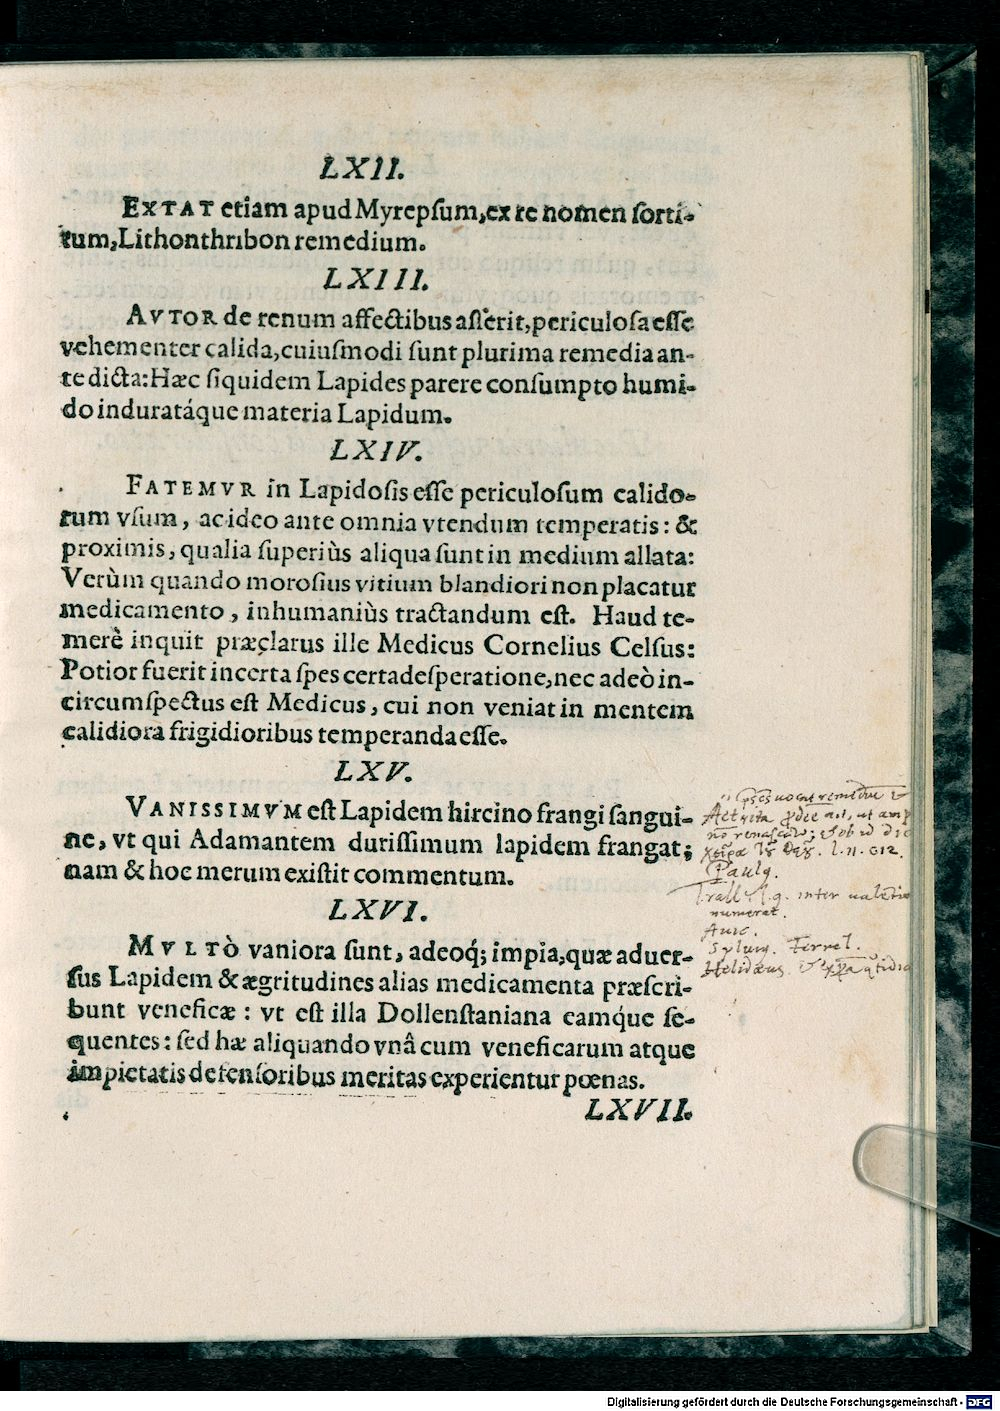 LXII.
EXTAT etiam apud Myrepſum, ex re nomen ſorti-
tum, Lithonthribon remedium.
LXIII.
AVTOR de renum affectibus aſſerit, periculoſa eſſe
vehementer calida, cuiuſmodi ſunt plurima remedia an-
te dicta: Hæc ſiquidem Lapides parere conſumpto humi-
do induratáque materia Lapidum.
LXIV.
FATEMVR in Lapidoſis eſſe periculoſum calido-
rum vſum, ac ideo ante omnia vtendum temperatis: &
proximis, qualia ſuperiùs aliqua ſunt in medium allata:
Verùm quando moroſius vitium blandiori non placatur
medicamento, inhumaniùs tractandum eſt. Haud te-
merè inquit præclarus ille Medicus Cornelius Celſus:
Potior fuerit incerta ſpes certa deſperatione, nec adeò in-
circumſpectus eſt Medicus, cui non veniat in mentem
calidiora frigidioribus temperanda eſſe.
LXV.
VANISSIMVM eſt Lapidem hircino frangi ſangui-
ne, vt qui Adamantem duriſſimum lapidem frangat;
nam & hoc merum exiſtit commentum.
remediũ
Aet
renaſcatur
Paulꝯ.
Trall inter
numerat.
Auic.
Sylviꝯ. Ferrel.
LXVI.
MVLTÒ vaniora ſunt, adeoq́; impia, quæ aduer-
ſus Lapidem & ægritudines alias medicamenta præſcri-
bunt veneficæ: vt eſt illa Dollenſtaniana eamq́ue ſe-
quentes: ſed hæ aliquando vnâ cum veneficarum atque
impietatis defenſoribus meritas experientur pœnas.
LXVII.
Digitalisierung gefördert durch die Deutsche Forschungsgemeinschaft - DFG